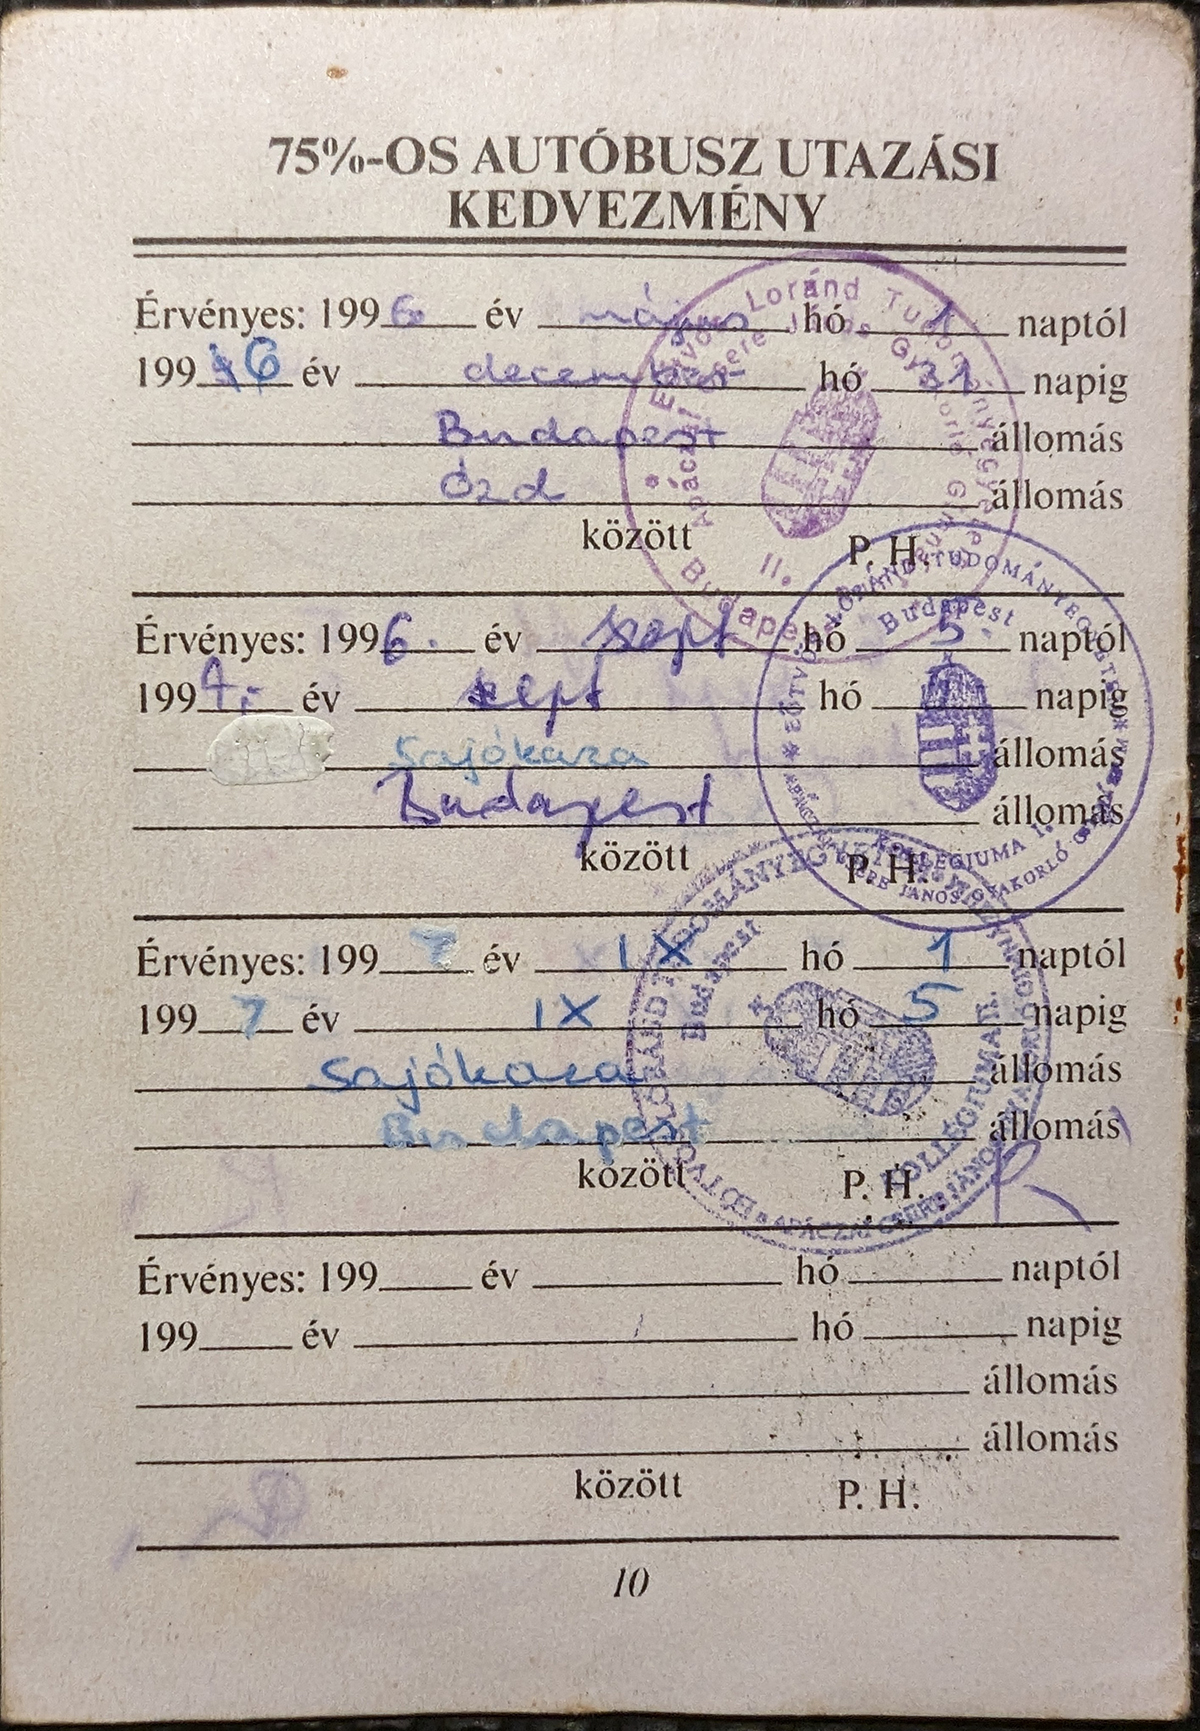 75%-OS AUTÓBUSZ UTAZÁSI
KEDVEZMÉNY
Érvényes: 1996 év május hó 1 naptól
1996 év december hó 31 napig
Budapest állomás
Ózd állomás
között P. H.
Eötvös Loránd Tudományegyetem
Apáczai Csere János Gyakorló Gimnáziuma
II.
Budapest
Érvényes: 1996. év szept hó 5. naptól
199 év szept hó napig
Sajókaza állomás
Budapest állomás
között P. H.
EÖTVÖS LORÁND TUDOMÁNYEGYETEM
Budapest
KOLLÉGIUMA I.
APÁCZAI CSERE JÁNOS GYAKORLÓ
Érvényes: 1997 év IX hó 1 naptól
1997 év IX hó 5 napig
Sajókaza állomás
Budapest állomás
között P. H.
EÖTVÖS LORÁND TUDOMÁNYEGYETEM
Budapest
KOLLÉGIUMA II.
APÁCZAI CSERE JÁNOS GYAKORLÓ
Érvényes: 199 év hó naptól
199 év hó napig
állomás
állomás
között P. H.
10